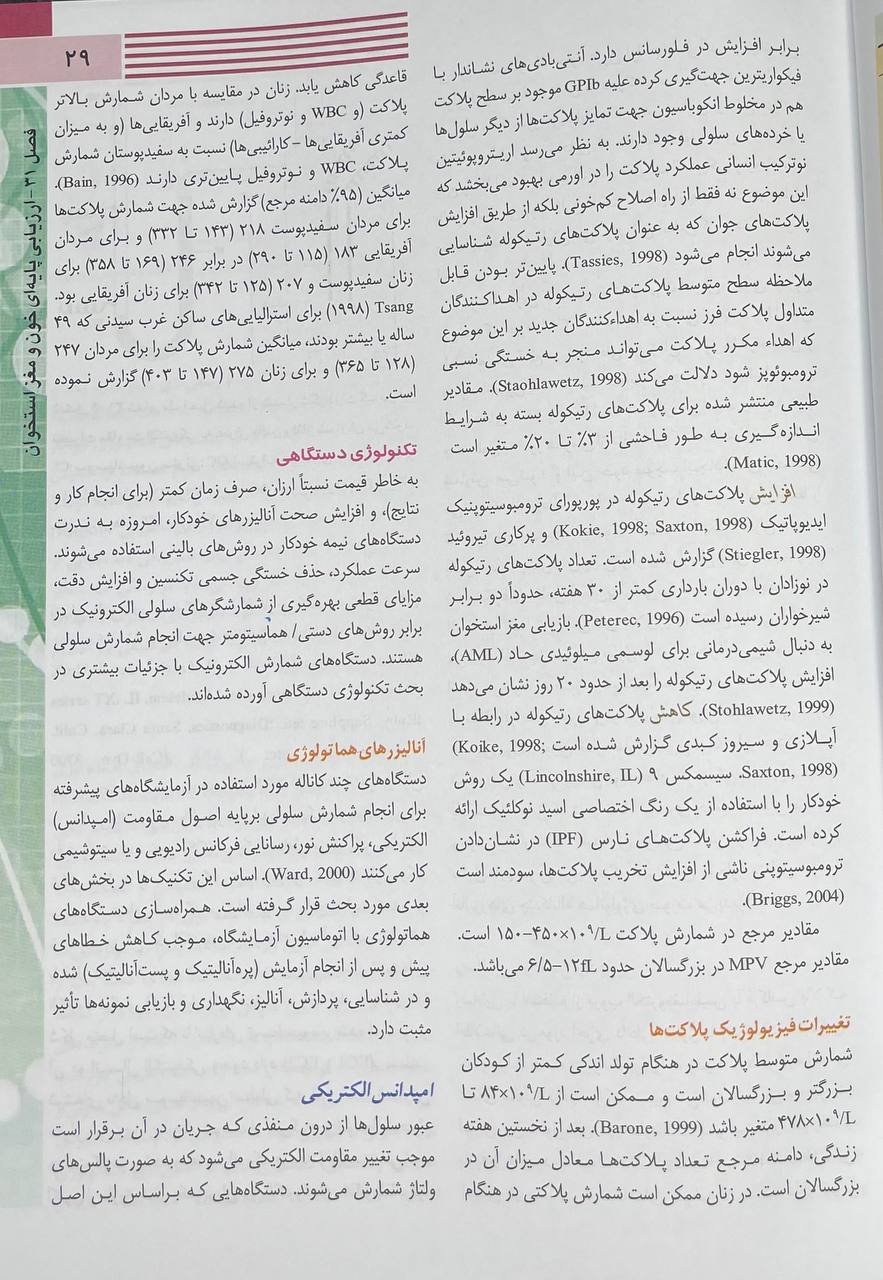 ۲۹
فصل ۳۱ - ارزیابی پایه‌ای خون و مغز استخوان
برابر افزایش در فلورسانس دارد. آنتی‌بادی‌های نشاندار با
فیکواریترین جهت‌گیری کرده علیه GPIb موجود بر سطح پلاکت
هم در مخلوط انکوباسیون جهت تمایز پلاکت‌ها از دیگر سلول‌ها
یا خرده‌های سلولی وجود دارند. به نظر می‌رسد اریتروپوئیتین
نوترکیب انسانی عملکرد پلاکت را در اورمی بهبود می‌بخشد که
این موضوع نه فقط از راه اصلاح کم‌خونی بلکه از طریق افزایش
پلاکت‌های جوان که به عنوان پلاکت‌های رتیکوله شناسایی
می‌شوند انجام می‌شود (Tassies, 1998). پایین‌تر بودن قابل
ملاحظه سطح متوسط پلاکت‌های رتیکوله در اهداکنندگان
متداول پلاکت فرز نسبت به اهداءکنندگان جدید بر این موضوع
که اهداء مکرر پلاکت می‌تواند منجر به خستگی نسبی
ترومبوئویز شود دلالت می‌کند (Staohlawetz, 1998). مقادیر
طبیعی منتشر شده برای پلاکت‌های رتیکوله بسته به شرایط
اندازه‌گیری به طور فاحشی از ۳٪ تا ۲۰٪ متغیر است
(Matic, 1998).
افزایش پلاکت‌های رتیکوله در پورپورای ترومبوسیتوپنیک
ایدیوپاتیک (Kokie, 1998; Saxton, 1998) و پرکاری تیروئید
(Stiegler, 1998) گزارش شده است. تعداد پلاکت‌های رتیکوله
در نوزادان با دوران بارداری کمتر از ۳۰ هفته، حدوداً دو برابر
شیرخواران رسیده است (Peterec, 1996). بازیابی مغز استخوان
به دنبال شیمی‌درمانی برای لوسمی میلوئیدی حاد (AML)،
افزایش پلاکت‌های رتیکوله را بعد از حدود ۲۰ روز نشان می‌دهد
(Stohlawetz, 1999). کاهش پلاکت‌های رتیکوله در رابطه با
آپلازی و سیروز کبدی گزارش شده است (Koike, 1998;
Saxton, 1998). سیسمکس ۹ (Lincolnshire, IL) یک روش
خودکار را با استفاده از یک رنگ اختصاصی اسید نوکلئیک ارائه
کرده است. فراکشن پلاکت‌های نارس (IPF) در نشان‌دادن
ترومبوسیتوپنی ناشی از افزایش تخریب پلاکت‌ها، سودمند است
(Briggs, 2004).
مقادیر مرجع در شمارش پلاکت ۱۵۰-۴۵۰×۱۰⁹/L است.
مقادیر مرجع MPV در بزرگسالان حدود ۶/۵-۱۲fL می‌باشد.
تغییرات فیزیولوژیک پلاکت‌ها
شمارش متوسط پلاکت در هنگام تولد اندکی کمتر از کودکان
بزرگتر و بزرگسالان است و ممکن است از ۸۴×۱۰⁹/L تا
۴۷۸×۱۰⁹/L متغیر باشد (Barone, 1999). بعد از نخستین هفته
زندگی، دامنه مرجع تعداد پلاکت‌ها معادل میزان آن در
بزرگسالان است. در زنان ممکن است شمارش پلاکتی در هنگام
قاعدگی کاهش یابد. زنان در مقایسه با مردان شمارش بالاتر
پلاکت (و WBC و نوتروفیل) دارند و آفریقایی‌ها (و به میزان
کمتری آفریقایی‌ها - کارائیبی‌ها) نسبت به سفیدپوستان شمارش
پلاکت، WBC و نوتروفیل پایین‌تری دارند (Bain, 1996).
میانگین (۹۵٪ دامنه مرجع) گزارش شده جهت شمارش پلاکت‌ها
برای مردان سفیدپوست ۲۱۸ (۱۴۳ تا ۳۳۲) و برای مردان
آفریقایی ۱۸۳ (۱۱۵ تا ۲۹۰) در برابر ۲۴۶ (۱۶۹ تا ۳۵۸) برای
زنان سفیدپوست و ۲۰۷ (۱۲۵ تا ۳۴۲) برای زنان آفریقایی بود.
Tsang (۱۹۹۸) برای استرالیایی‌های ساکن غرب سیدنی که ۴۹
ساله یا بیشتر بودند، میانگین شمارش پلاکت را برای مردان ۲۴۷
(۱۲۸ تا ۳۶۵) و برای زنان ۲۷۵ (۱۴۷ تا ۴۰۳) گزارش نموده
است.
تکنولوژی دستگاهی
به خاطر قیمت نسبتاً ارزان، صرف زمان کمتر (برای انجام کار و
نتایج)، و افزایش صحت آنالیزرهای خودکار، امروزه به ندرت
دستگاه‌های نیمه خودکار در روش‌های بالینی استفاده می‌شوند.
سرعت عملکرد، حذف خستگی جسمی تکنسین و افزایش دقت،
مزایای قطعی بهره‌گیری از شمارشگرهای سلولی الکترونیک در
برابر روش‌های دستی/ هماسیتومتر جهت انجام شمارش سلولی
هستند. دستگاه‌های شمارش الکترونیک با جزئیات بیشتری در
بحث تکنولوژی دستگاهی آورده شده‌اند.
آنالیزرهای هماتولوژی
دستگاه‌های چند کاناله مورد استفاده در آزمایشگاه‌های پیشرفته
برای انجام شمارش سلولی برپایه اصول مقاومت (امپدانس)
الکتریکی، پراکنش نور، رسانایی فرکانس رادیویی و یا سیتوشیمی
کار می‌کنند (Ward, 2000). اساس این تکنیک‌ها در بخش‌های
بعدی مورد بحث قرار گرفته است. همراه‌سازی دستگاه‌های
هماتولوژی با اتوماسیون آزمایشگاه، موجب کاهش خطاهای
پیش و پس از انجام آزمایش (پره‌آنالیتیک و پست‌آنالیتیک) شده
و در شناسایی، پردازش، آنالیز، نگهداری و بازیابی نمونه‌ها تأثیر
مثبت دارد.
امپدانس الکتریکی
عبور سلول‌ها از درون منفذی که جریان در آن برقرار است
موجب تغییر مقاومت الکتریکی می‌شود که به صورت پالس‌های
ولتاژ شمارش می‌شوند. دستگاه‌هایی که براساس این اصل